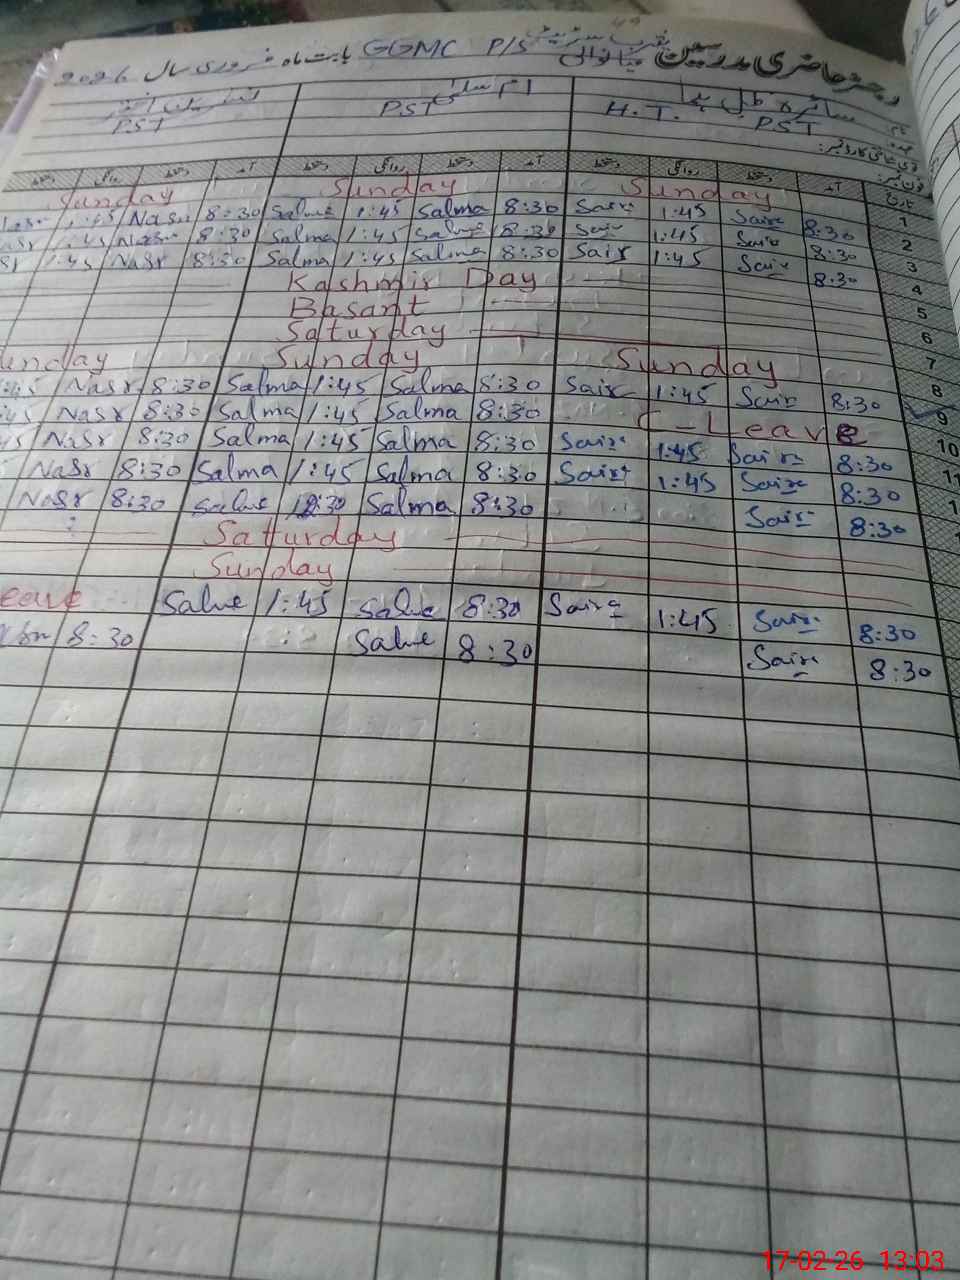 رجسٹر حاضری مدرسین GGMC P/S میانوالی بابت ماہ فروری سال 2026
PST H.T. ام سلمیٰ PST PST
تاریخ آمد دستخط روانگی دستخط آمد دستخط روانگی دستخط آمد دستخط روانگی دستخط
1 Sunday Sunday Sunday
2 8:30 Saira 1:45 Saira 8:30 Salma 1:45 Salma 8:30 Nasr 1:45
3 8:30 Sair 1:45 Sair 8:30 Salma 1:45 Salma 8:30 Nasr 1:45
4 8:30 Sair 1:45 Sair 8:30 Salma 1:45 Salma 8:30 Nasr 1:45
5 Kashmir Day
6 Basant
7 Saturday
8 Sunday Sunday Sunday
9 8:30 Sair 1:45 Sair 8:30 Salma 1:45 Salma 8:30 Nasr
10 C-Leave 8:30 Salma 1:45 Salma 8:30 Nasr
8:30 Saira 1:45 Saira 8:30 Salma 1:45 Salma 8:30 Nasr
8:30 Saira 1:45 Saira 8:30 Salma 1:45 Salma 8:30 Nasr
8:30 Saira 8:30 Salma Nasr 8:30
Saturday
Sunday
8:30 Saira 1:45 Saira 8:30 1:45
8:30 Saira 8:30 8:30
17-02-26 13:03